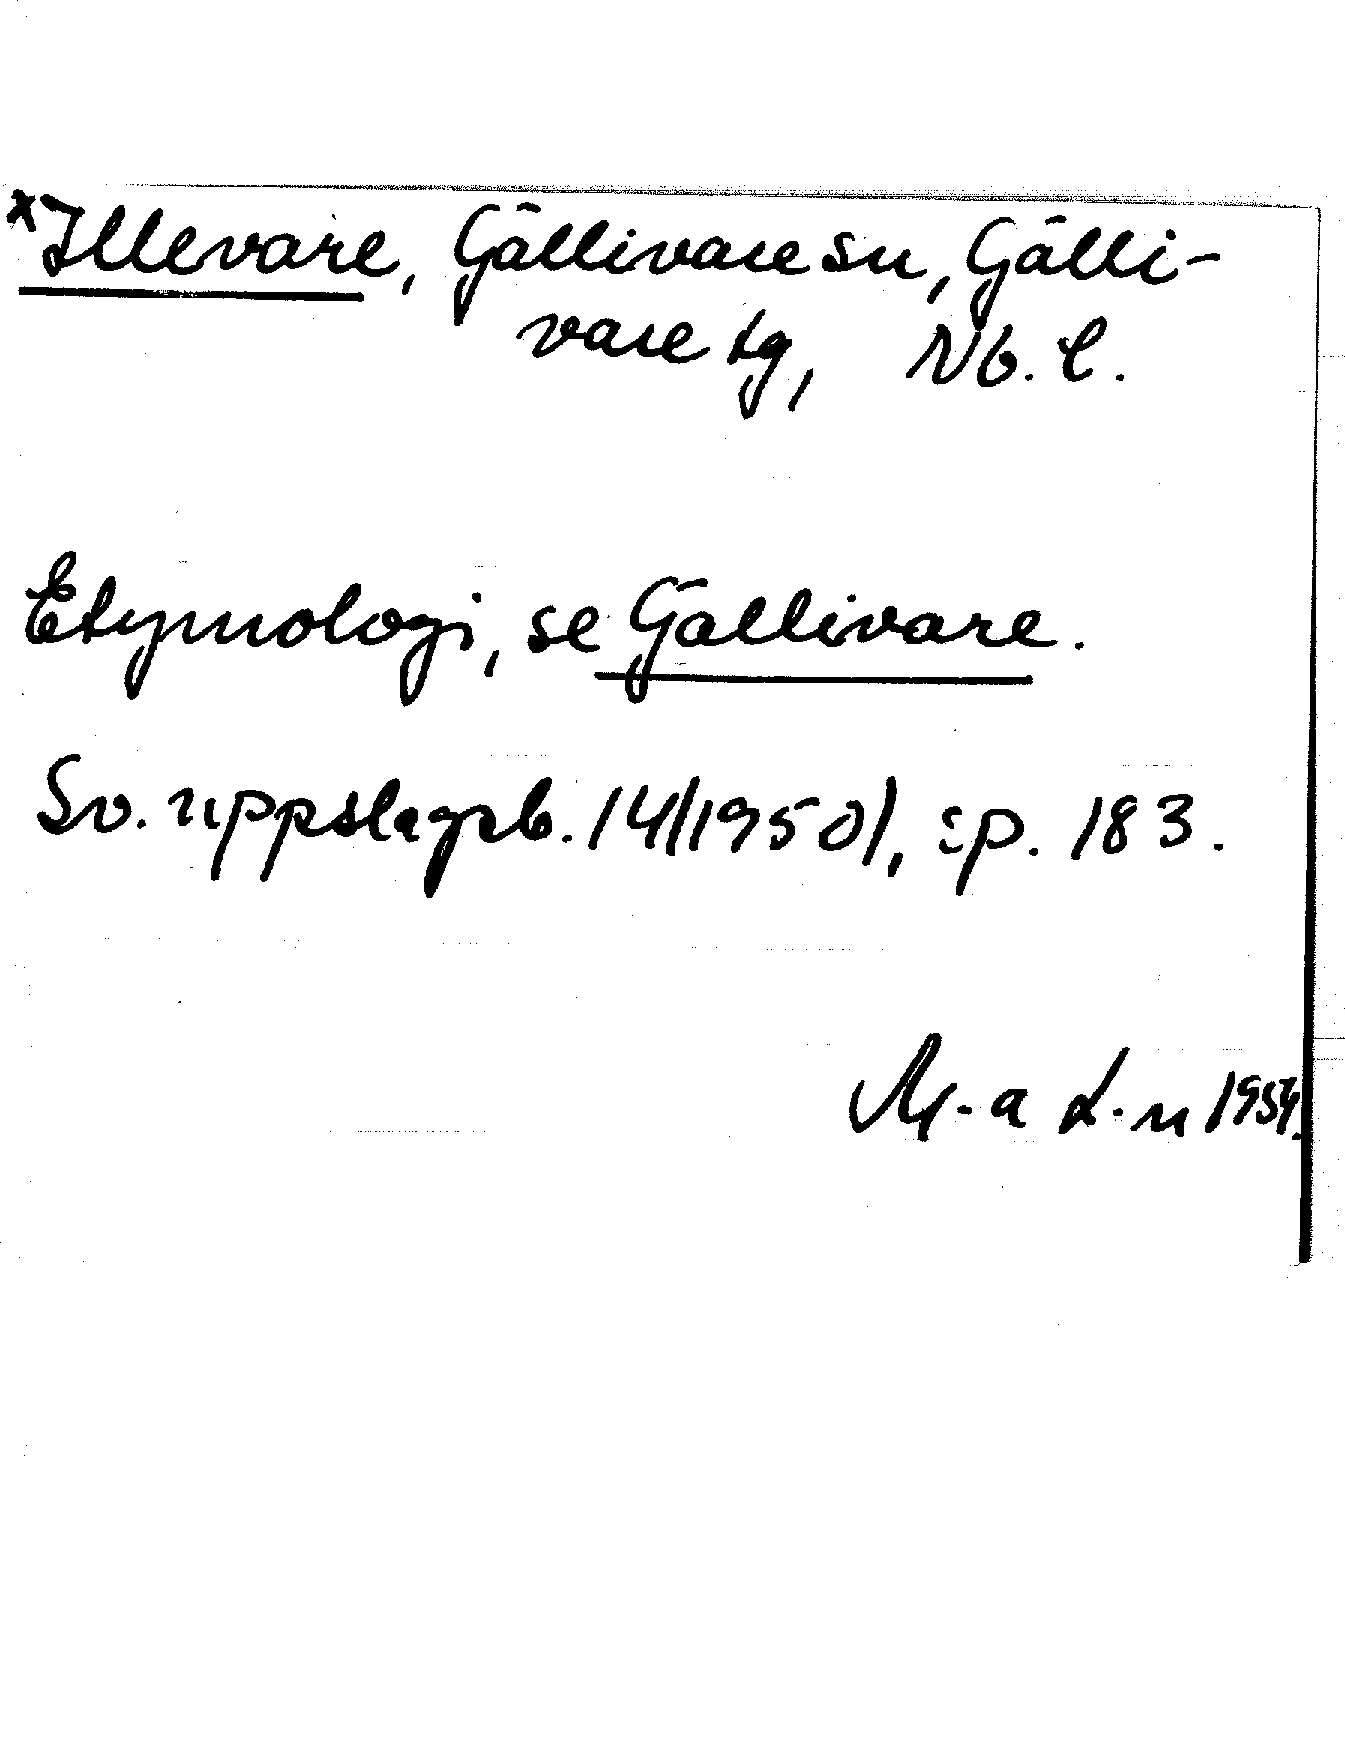 *Illevare, Gällivare sn, Gälli-
vare tg, Nb. l.
Etymologi, se Gällivare.
Sv. uppslagsb. 14/1950/, sp. 183.
M-a L-n 1954.